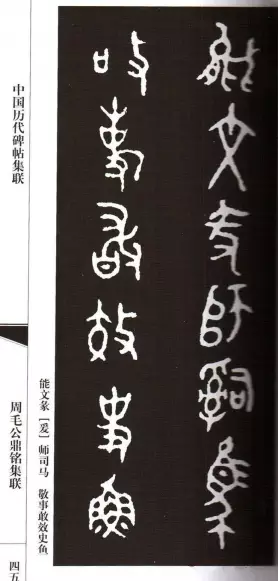 能文師司馬
敬事敢效史魚
能文彖［爰］师司马 敬事敢效史鱼
中国历代碑帖集联
周毛公鼎铭集联
四五